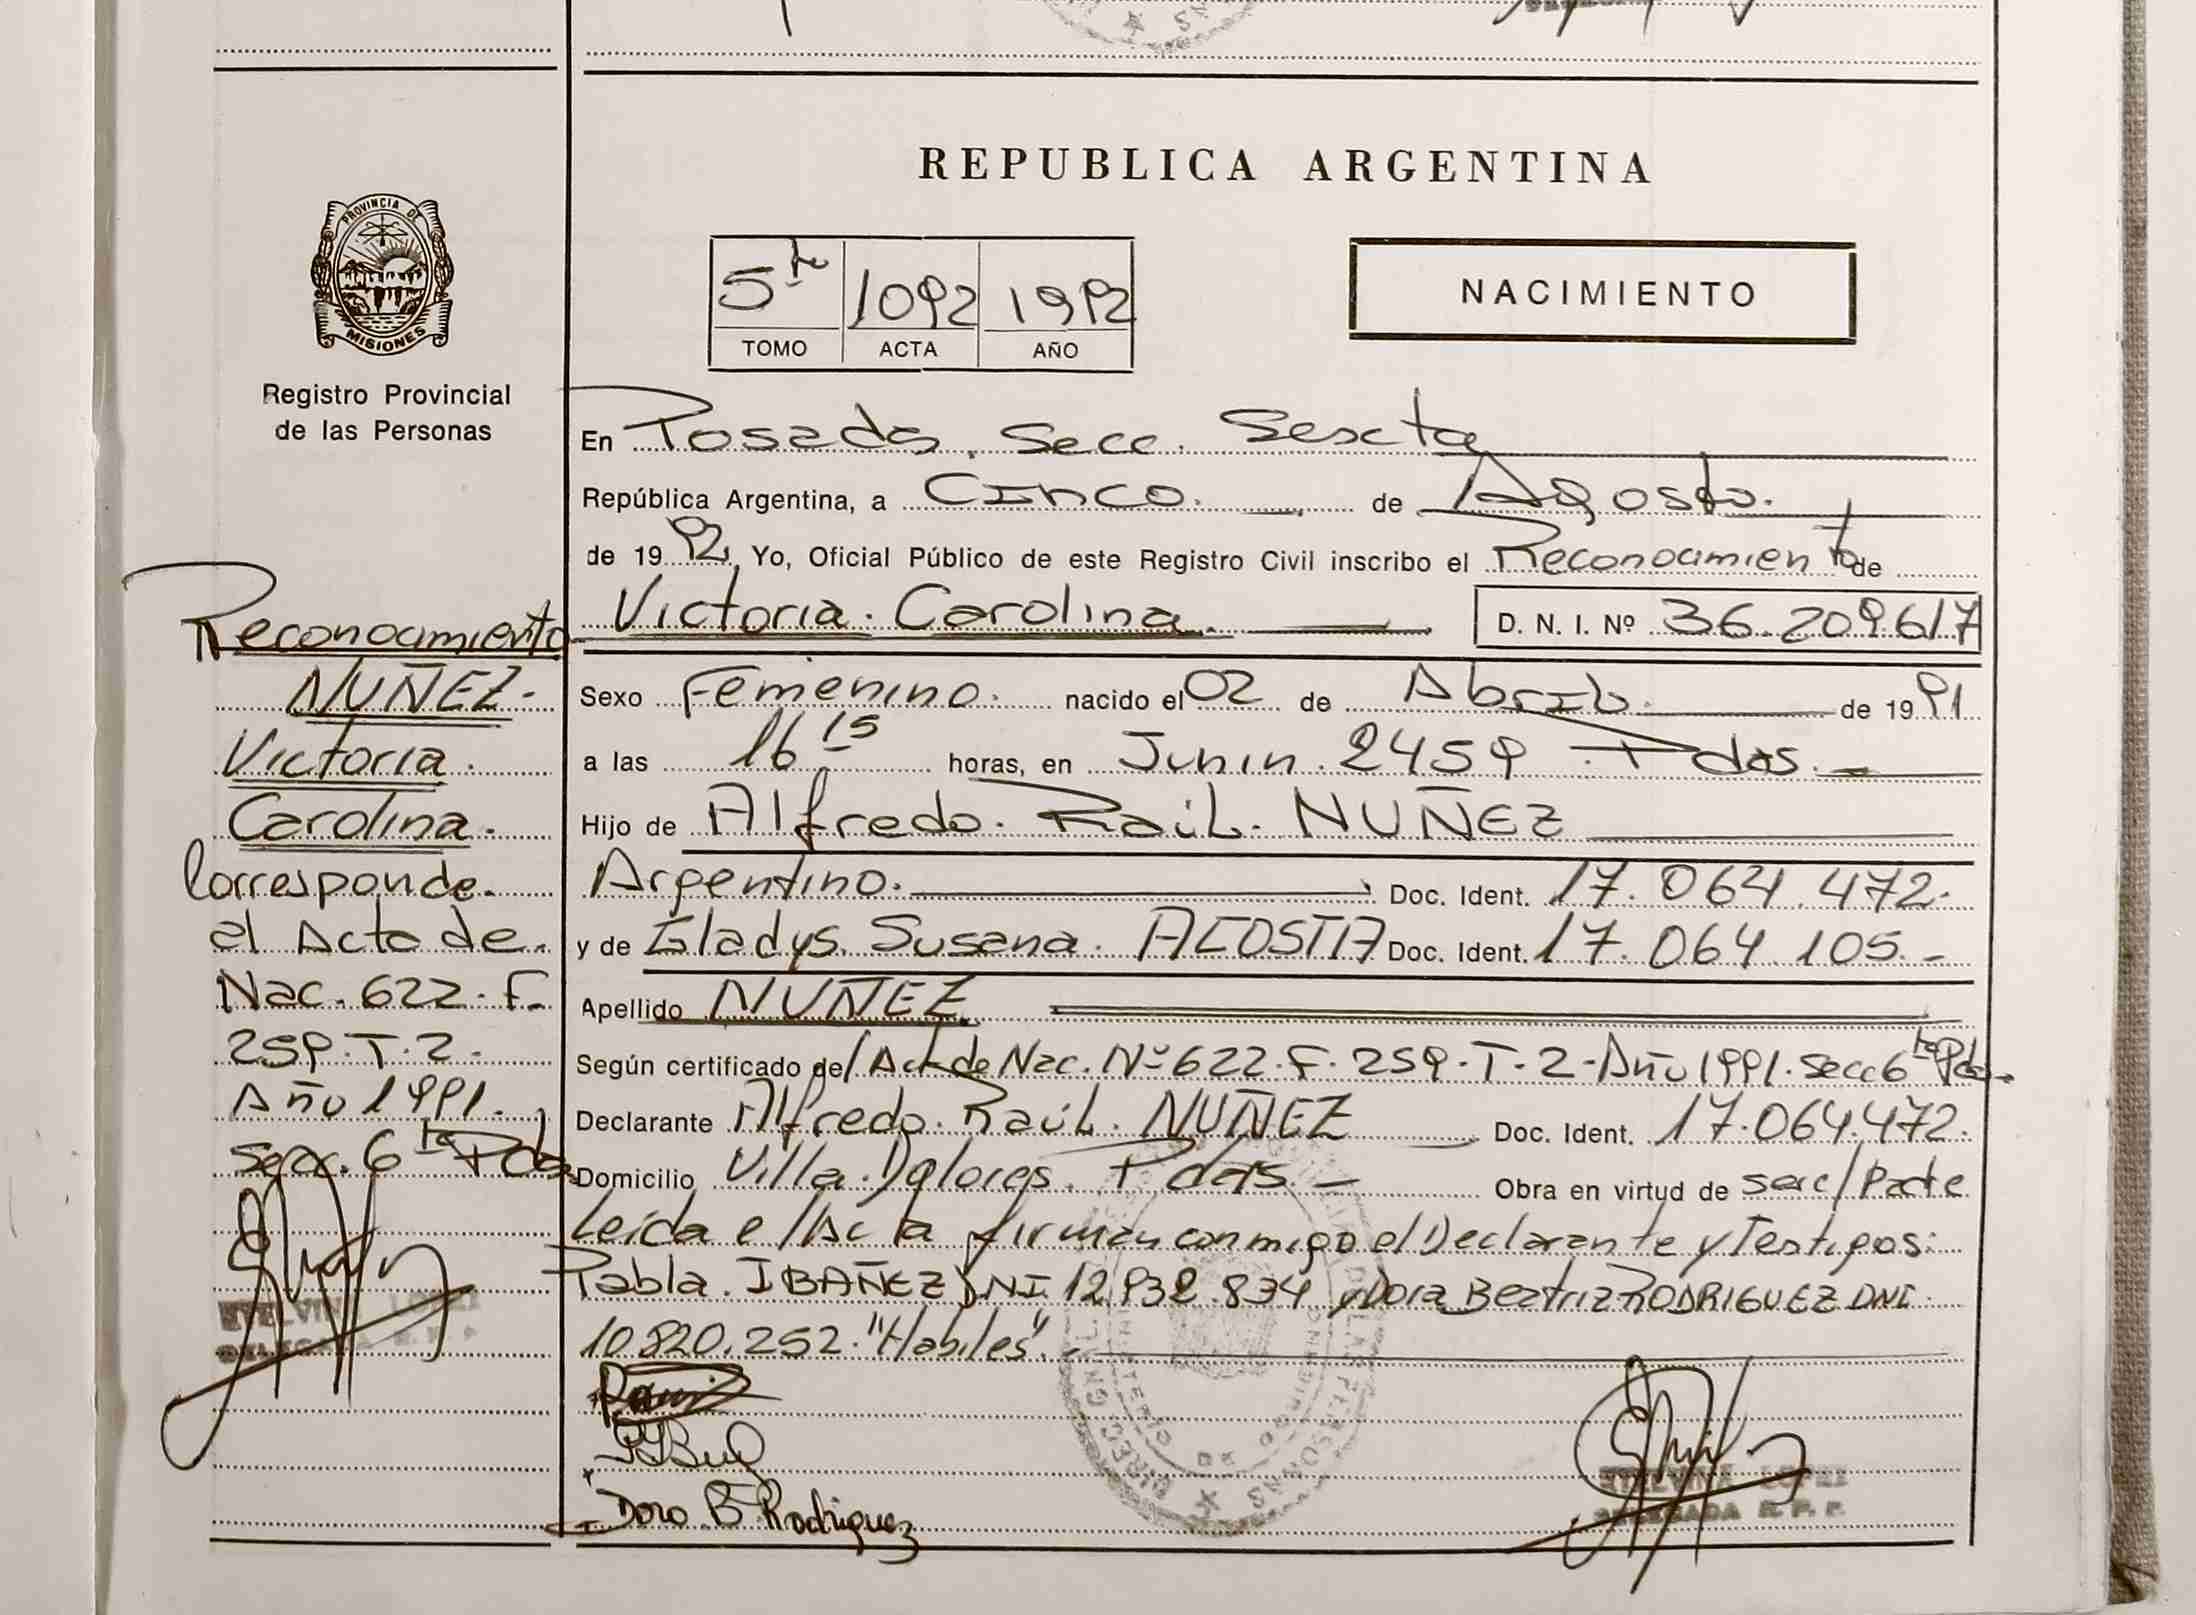 PROVINCIA DE
MISIONES
Registro Provincial
de las Personas
REPUBLICA ARGENTINA
5to 1092 1992
TOMO ACTA AÑO
NACIMIENTO
En Posadas. Secc. Sexcta
República Argentina, a Cinco. de Agosto.
de 1992, Yo, Oficial Público de este Registro Civil inscribo el Reconocimiento de
Victoria. Carolina. D. N. I. Nº 36.209617
Sexo Femenino. nacido el 02 de Abril. de 1991
a las 16 15 horas, en Junin. 2459. Pdas.
Hijo de Alfredo. Raúl. NUÑEZ
Argentino. Doc. Ident. 17.064.472.
y de Gladys. Susana. ACOSTA Doc. Ident. 17.064.105.-
Apellido NUÑEZ.
Según certificado de/ Act de Nac. Nº 622.F.259.T.2-Año 1991.Secc 6ta Pdas.
Declarante Alfredo. Raúl. NUÑEZ Doc. Ident. 17.064.472.
Domicilio Villa. Dolores. Pdas.- Obra en virtud de ser e/Padre
Leida e/Acta firman conmigo el Declarante y Testigos:
Pabla. IBAÑEZ DNI. 12.932.834 y Dora Beatriz RODRIGUEZ DNI
10.820.252. "Habiles".-
Dora B. Rodriguez
Reconocimiento
NUÑEZ.
Victoria.
Carolina.
Corresponde.
al Acta de.
Nac. 622. F.
259. T. 2.
Año 1991.
Secc. 6ta Pdas